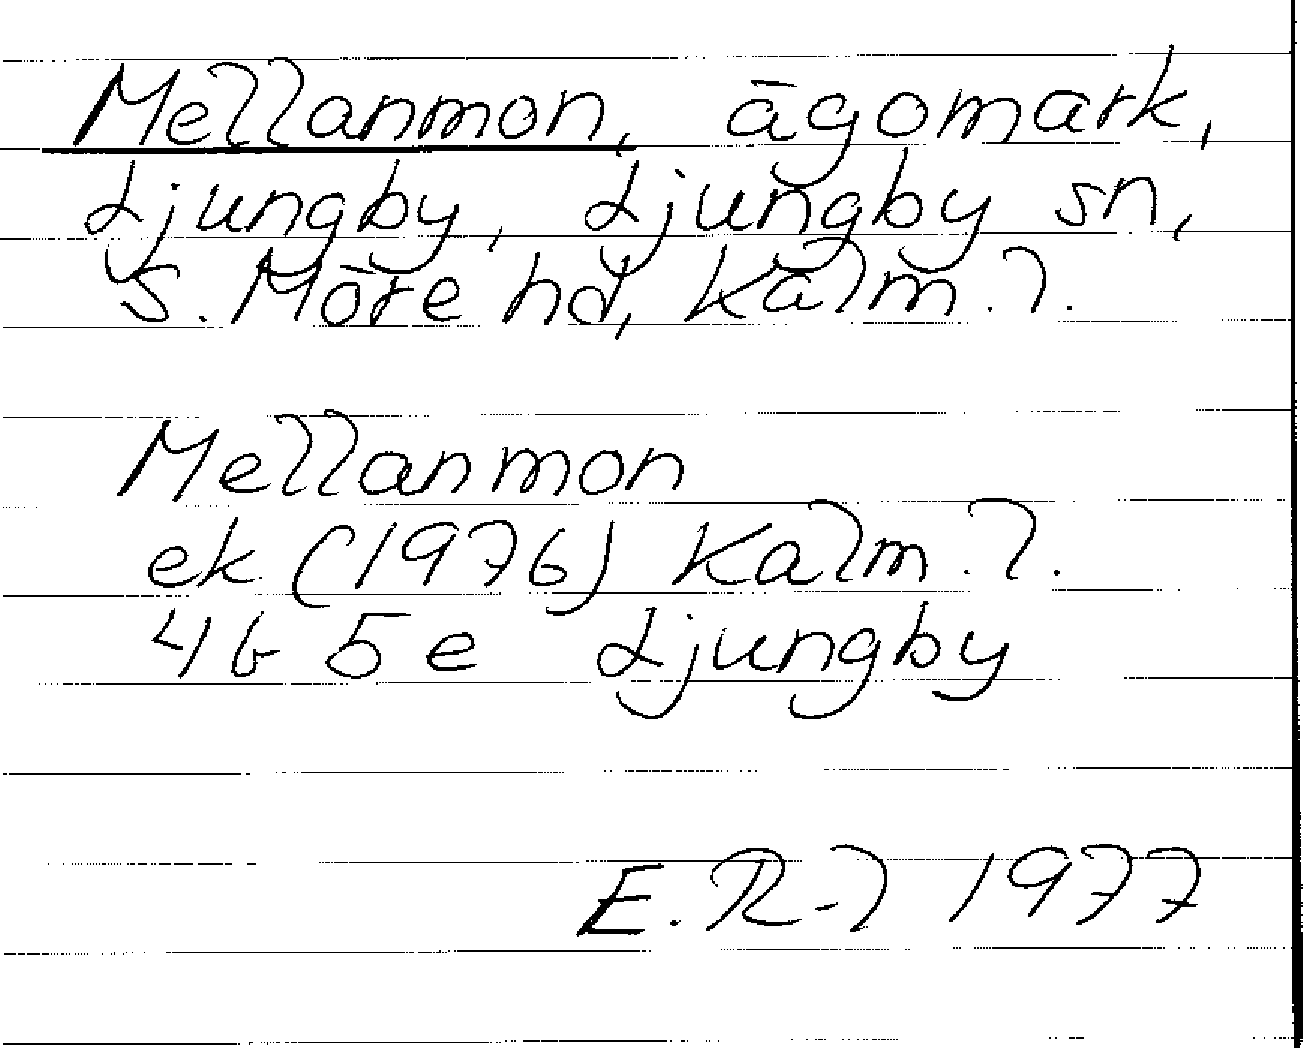 Mellanmon, ägomark,
Ljungby, Ljungby sn,
S. Möre hd, Kalm. l.
Mellanmon
ek (1976) Kalm. l.
4G 5e Ljungby
E. R-l 1977